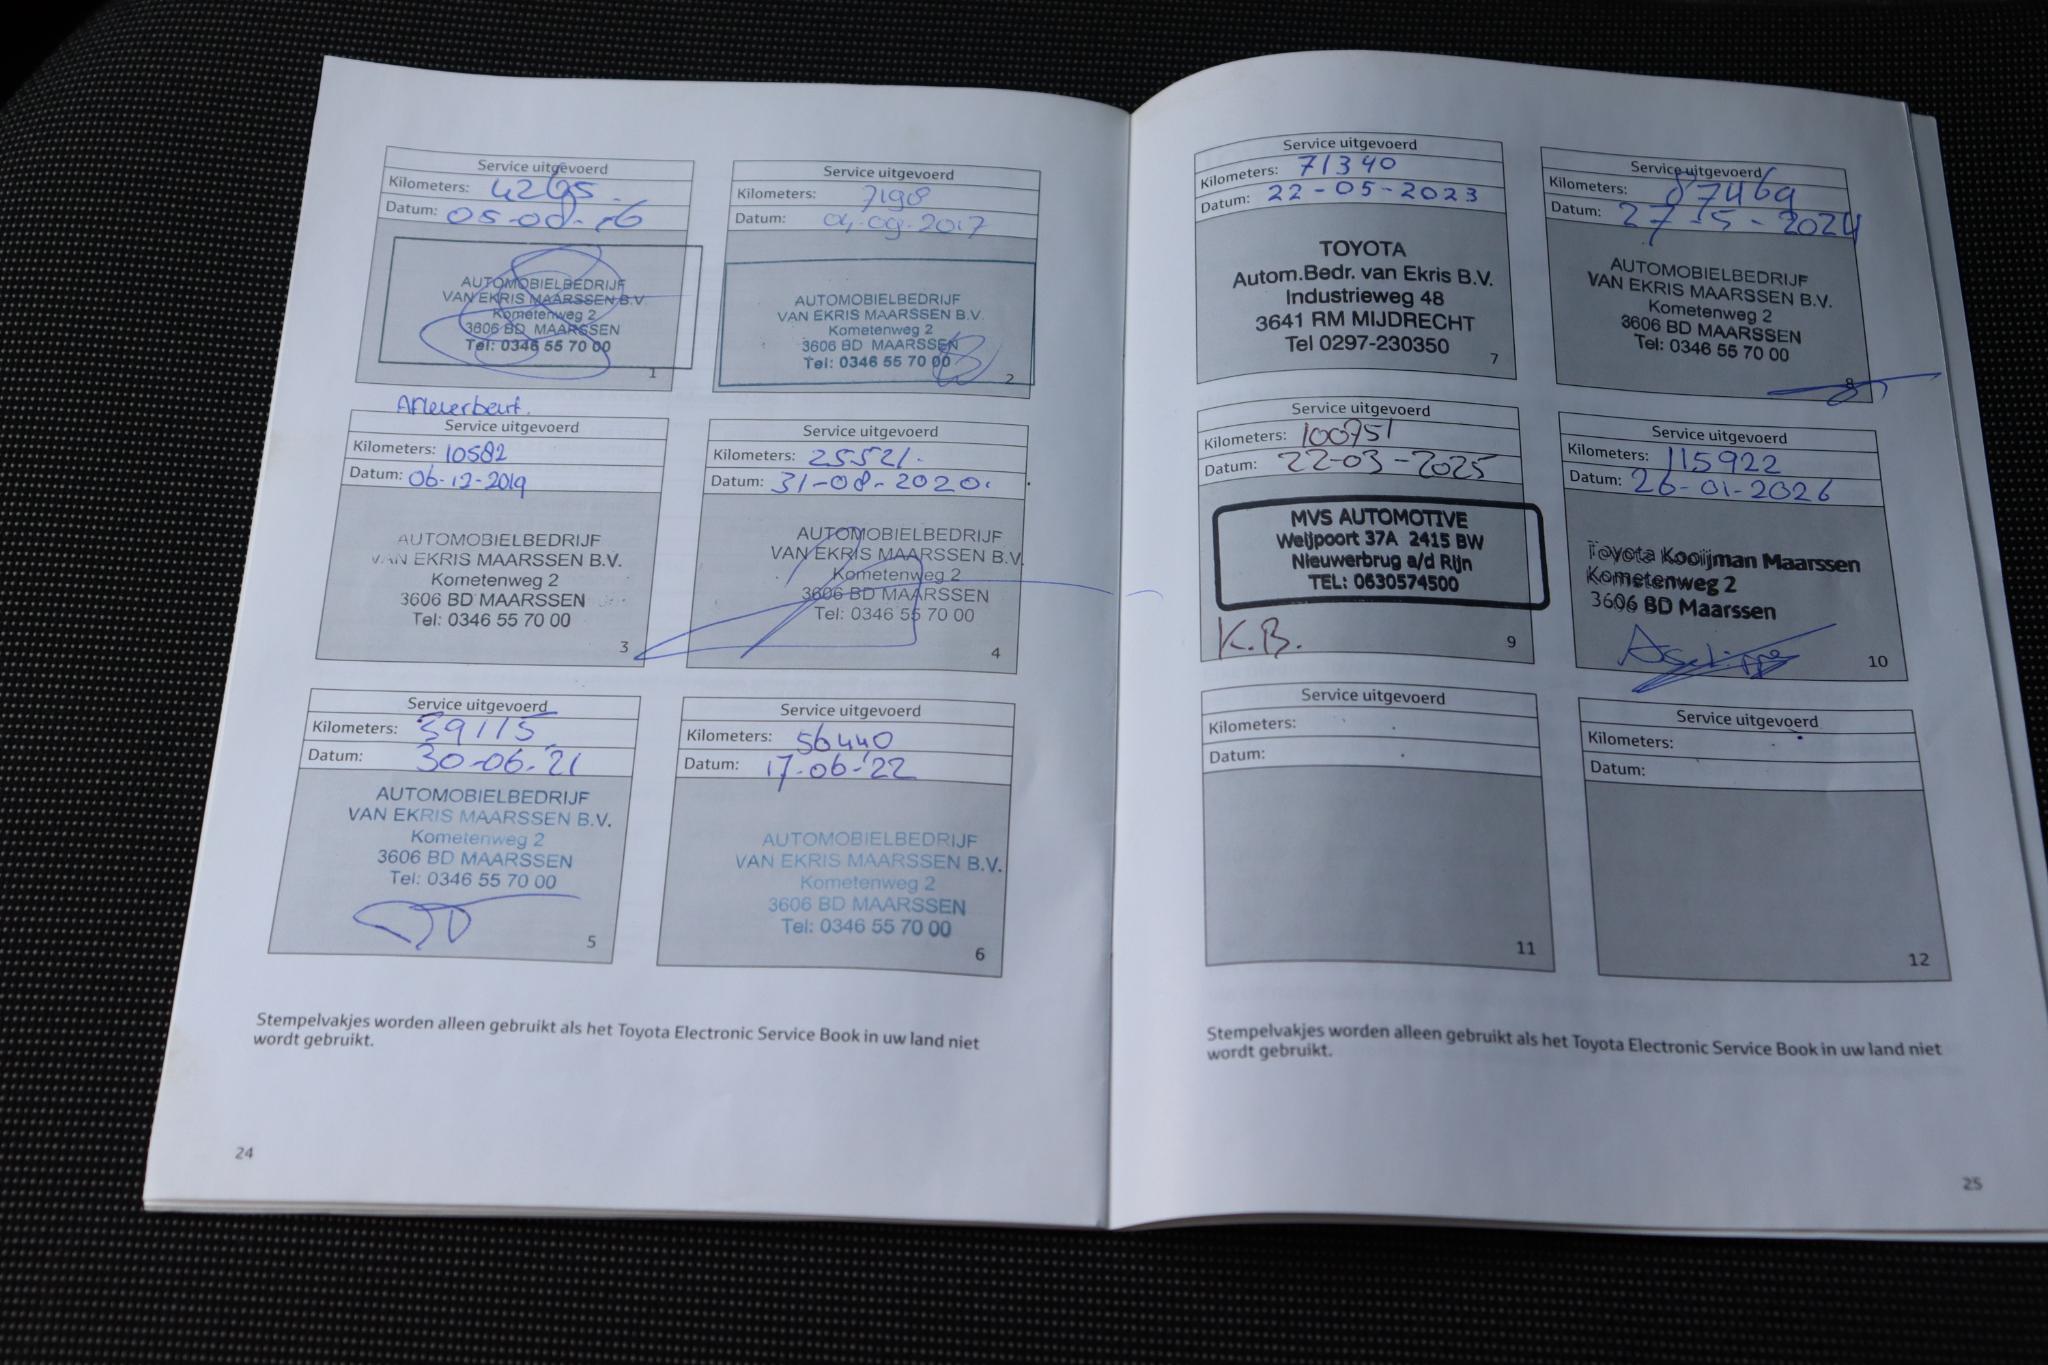 Service uitgevoerd
Kilometers: 4265
Datum: 05-08-16
AUTOMOBIELBEDRIJF
VAN EKRIS MAARSSEN B.V.
Kometenweg 2
3606 BD MAARSSEN
Tel: 0346 55 70 00
1
Afleverbeurt.
Service uitgevoerd
Kilometers: 7198
Datum: 04-09-2017
AUTOMOBIELBEDRIJF
VAN EKRIS MAARSSEN B.V.
Kometenweg 2
3606 BD MAARSSEN
Tel: 0346 55 70 00
2
Service uitgevoerd
Kilometers: 10582
Datum: 06-12-2019
AUTOMOBIELBEDRIJF
VAN EKRIS MAARSSEN B.V.
Kometenweg 2
3606 BD MAARSSEN
Tel: 0346 55 70 00
3
Service uitgevoerd
Kilometers: 25521.
Datum: 31-08-2020.
AUTOMOBIELBEDRIJF
VAN EKRIS MAARSSEN B.V.
Kometenweg 2
3606 BD MAARSSEN
Tel: 0346 55 70 00
4
Service uitgevoerd
Kilometers: 39115
Datum: 30-06-'21
AUTOMOBIELBEDRIJF
VAN EKRIS MAARSSEN B.V.
Kometenweg 2
3606 BD MAARSSEN
Tel: 0346 55 70 00
5
Service uitgevoerd
Kilometers: 56440
Datum: 17-06-'22
AUTOMOBIELBEDRIJF
VAN EKRIS MAARSSEN B.V.
Kometenweg 2
3606 BD MAARSSEN
Tel: 0346 55 70 00
6
Stempelvakjes worden alleen gebruikt als het Toyota Electronic Service Book in uw land niet
wordt gebruikt.
24
Service uitgevoerd
Kilometers: 71340
Datum: 22-05-2023
TOYOTA
Autom.Bedr. van Ekris B.V.
Industrieweg 48
3641 RM MIJDRECHT
Tel 0297-230350
7
Service uitgevoerd
Kilometers: 87469
Datum: 27-5-2024
AUTOMOBIELBEDRIJF
VAN EKRIS MAARSSEN B.V.
Kometenweg 2
3606 BD MAARSSEN
Tel: 0346 55 70 00
8
Service uitgevoerd
Kilometers: 100751
Datum: 22-03-2025
MVS AUTOMOTIVE
Weijpoort 37A 2415 BW
Nieuwerbrug a/d Rijn
TEL: 0630574500
K.B.
9
Service uitgevoerd
Kilometers: 115922
Datum: 26-01-2026
Toyota Kooijman Maarssen
Kometenweg 2
3606 BD Maarssen
10
Service uitgevoerd
Kilometers:
Datum:
11
Service uitgevoerd
Kilometers:
Datum:
12
Stempelvakjes worden alleen gebruikt als het Toyota Electronic Service Book in uw land niet
wordt gebruikt.
25